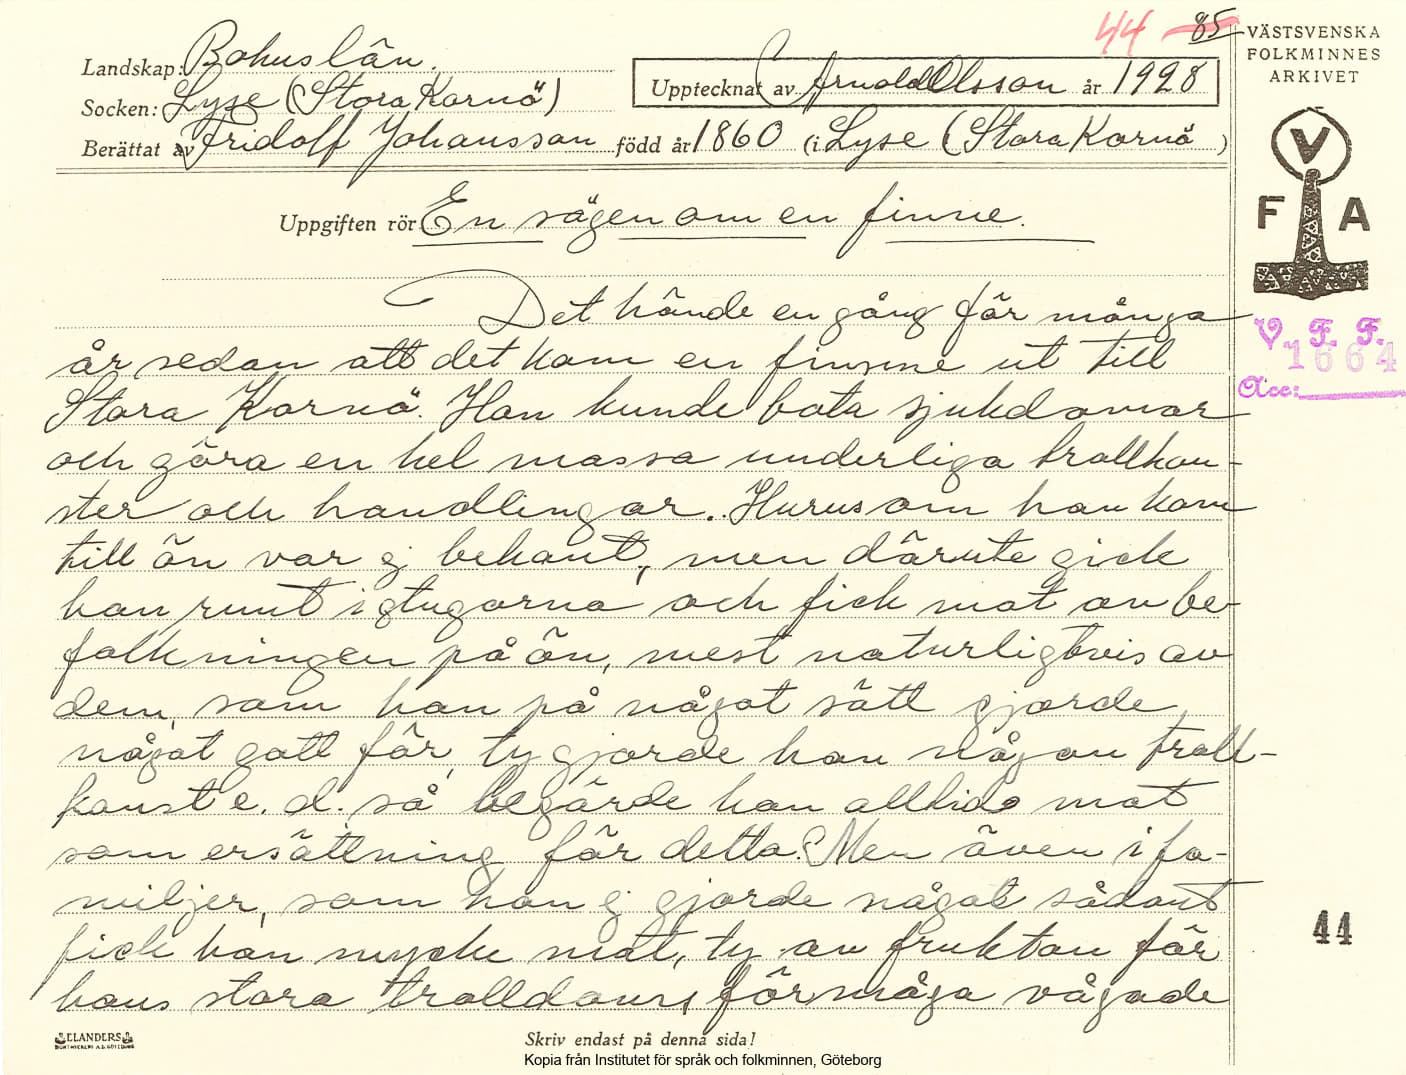 44 85
VÄSTSVENSKA
FOLKMINNES
ARKIVET
Landskap: Bohuslän.
Upptecknat av Arnold Olsson år 1928
Socken: Lyse (Stora Kornö)
Berättat av Fridolf Johansson född år 1860 (i Lyse (Stora Kornö)
V
F A
Uppgiften rör En sägen om en finne.
Det hände en gång för många
år sedan att det kom en finne ut till
Stora Kornö. Han kunde bota sjukdomar
och göra en hel massa underliga trollkon-
ster och handlingar. Hurusom han kom
till ön var ej bekant, men därute gick
han runt i stugorna och fick mat av be-
folkningen på ön, mest naturligtvis av
dem, som han på något sätt gjorde
något gott för, ty gjorde han någon troll-
konst e. d. så begärde han alltid mat
som ersättning för detta. Men även i fa-
miljer, som han ej gjorde något sådant
fick han mycke mat, ty av fruktan för
hans stora trolldomsförmåga vågade
V. F. F.
1664
Acc:
44
ELANDERS
BOKTRYCKERI A.B. GÖTEBORG
Skriv endast på denna sida!
Kopia från Institutet för språk och folkminnen, Göteborg